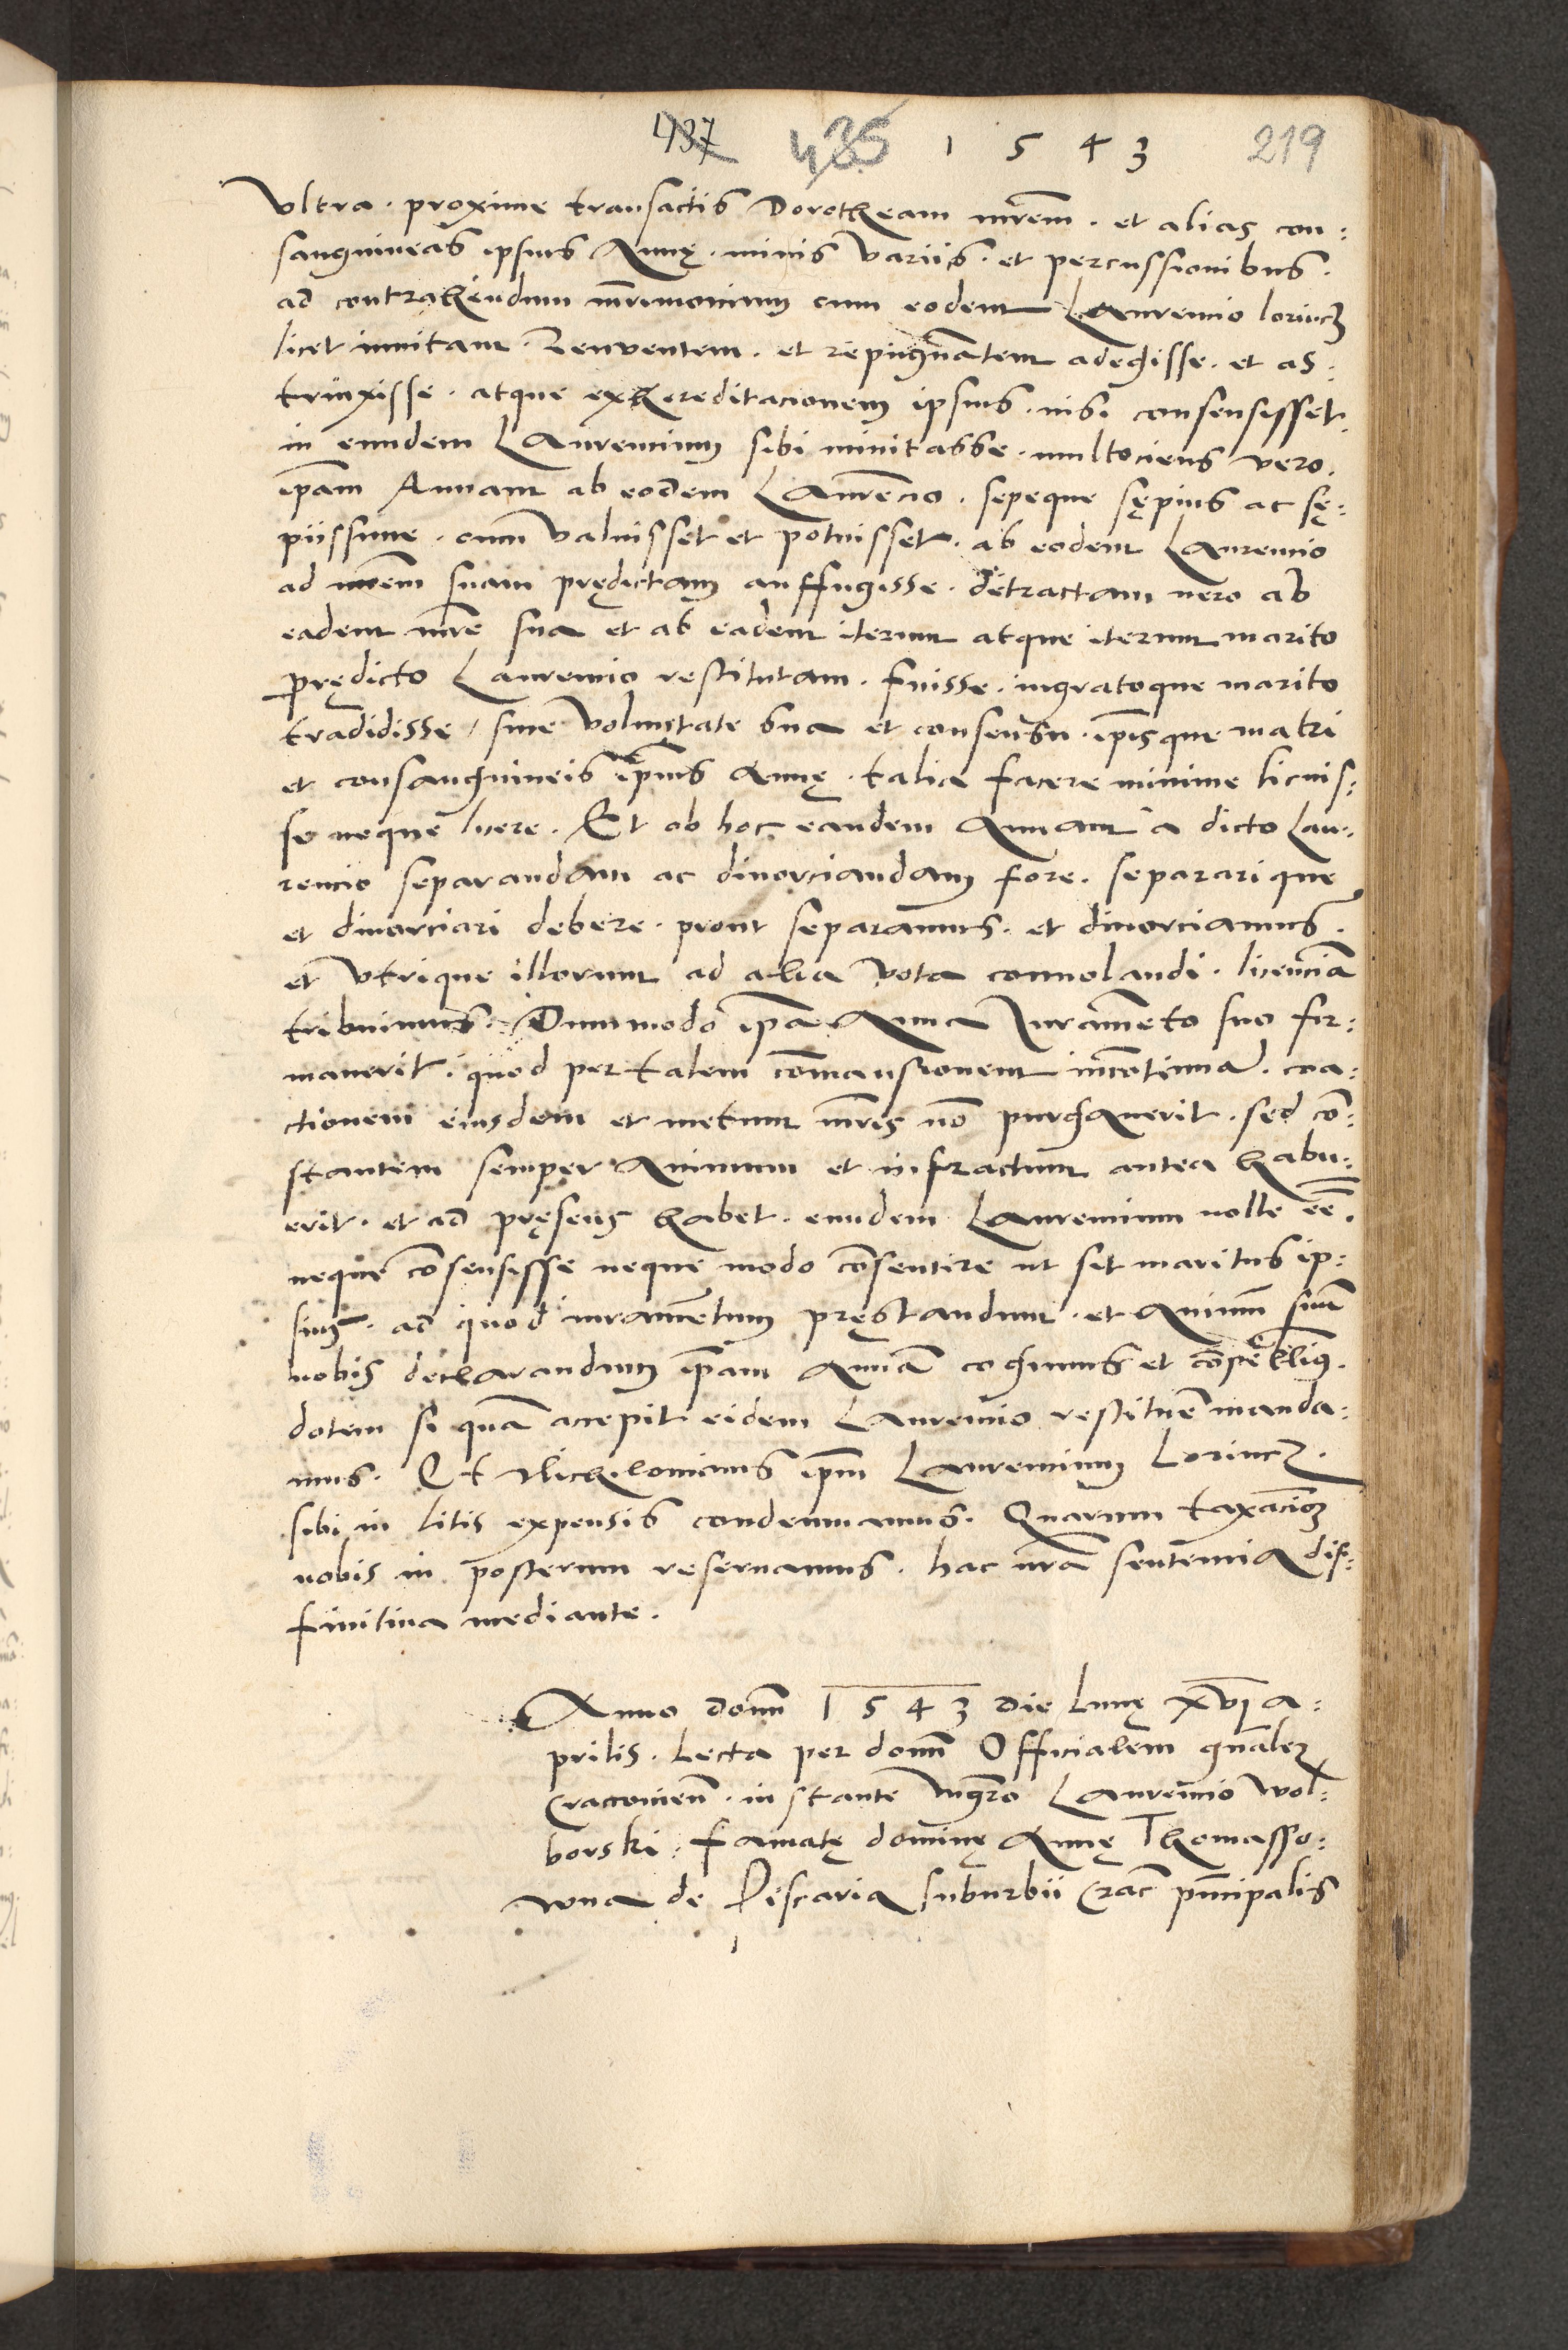 437 435 1 5 4 3 219
Vltra · proxime transactis Dorotheam mr̄em · et alias con:
sanguineas ipsius Annę · minis variis · et percussionibus ·
ad contrahendum mr̄imonium cum eodem Laurencio lorincz
licet inuitam · Renuentem · et repugnātem adegisse · et as:
trinxisse · atque exhereditacionem ipsius · nisi consensisset ·
in eundem Laurencium sibi minitasse · multociens vero ·
ip̄am Annam ab eodem Laurēcio · sepeque sępius ac sę:
piissime · cum valuisset et potuisset · ab eodem Laurencio
ad mr̄em suam prędictam auffugisse · detractam uero ab
eadem mr̄e sua et ab eadem iterum atque iterum marito
prędicto Laurencio restitutam · fuisse · ingratoque marito
tradidisse / sine voluntate sua et consensu · ip̄isque matri
et consanguineis ip̄ius Annę · talia facere minime licuis:
se neque licere · Et ob hoc eandem Annam a dicto Lau:
rencio separandam ac diuorciandam fore · separarique
et diuorciari debere · prout separamus · et diuorciamus ·
et vtrique illorum ad alia vota conuolandi · licenciā
tribuimus · Dummodo ip̄a Anna Iuramēto suo fir:
mauerit · quod per talem cōmansionem · coa:
ctionem eiusdem et metum mr̄is nō purgauerit · sed cō:
stantem semper animum et infractum antea habu:
erit · et ad pręsens habet · eundem Laurencium nolle eē̄ ·
neque cōsensisse neque modo cōsentire ut sit maritus ip:
sius · ad quod iuramētum pręstandum · et animū suū
nobis declarandum ip̄am Annā cogimus et cōpellim9 ·
dotem si quā accepit eidem Laurencio restituē manda:
mus · Et Nichilominus ip̄m Laurencium Lorincz ·
sibi in litis expensis condemnamus · Quarum taxaciōz
nobis in posterum reseruamus · hac nr̄a sentencia dif:
finitiua mediante ·
Anno domī 1 5 4 3 die Lunę xvi A:
prilis · Lecta per domī Officialem gnālez
Cracouieñ · instante mgrō Laurencio Wol:
borski · famatę dominę Annę Thomasso:
wna de Piscaria suburbii Crac̄ prīncipalis